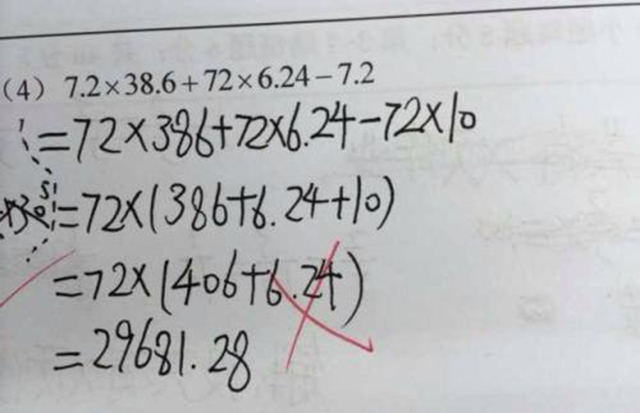 (4) 7.2×38.6+72×6.24−7.2
=72×386+72×6.24−72×10
=72×(386+6.24+10)
=72×(406+6.24)
=29681.28